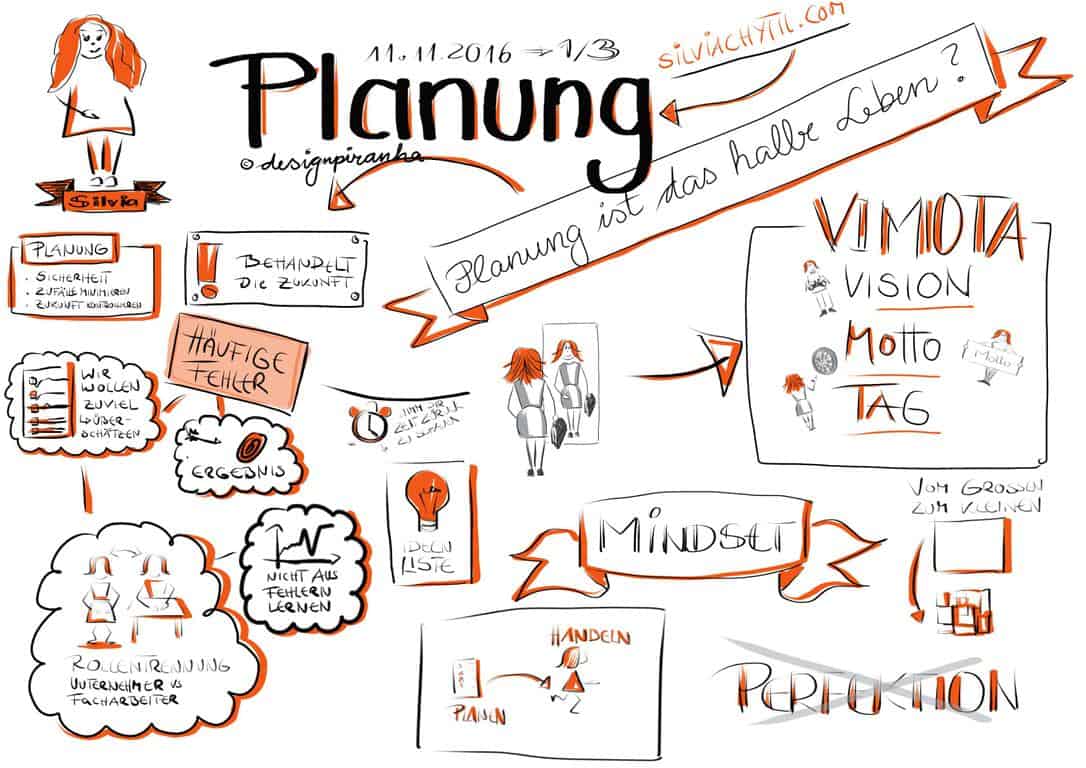 11.11.2016 → 1/3
SILVIACHYTIL.COM
Planung
© designpiranha
Silvia
Planung ist das halbe Leben?
PLANUNG
· SICHERHEIT
· ZUFÄLLE MINIMIEREN
· ZUKUNFT KONTROLLIEREN
! BEHANDELT
DIE ZUKUNFT
HÄUFIGE
FEHLER
WIR
WOLLEN
ZUVIEL
& ÜBER-
SCHÄTZEN
ERGEBNIS
NICHT AUS
FEHLERN
LERNEN
ROLLENTRENNUNG
UNTERNEHMER VS
FACHARBEITER
IDEEN
LISTE
VIMOTA
VISION
MOTTO
Motto
TAG
MINDSET
VOM GROSSEN
ZUM KLEINEN
HANDELN
PLANEN
PERFEKTION